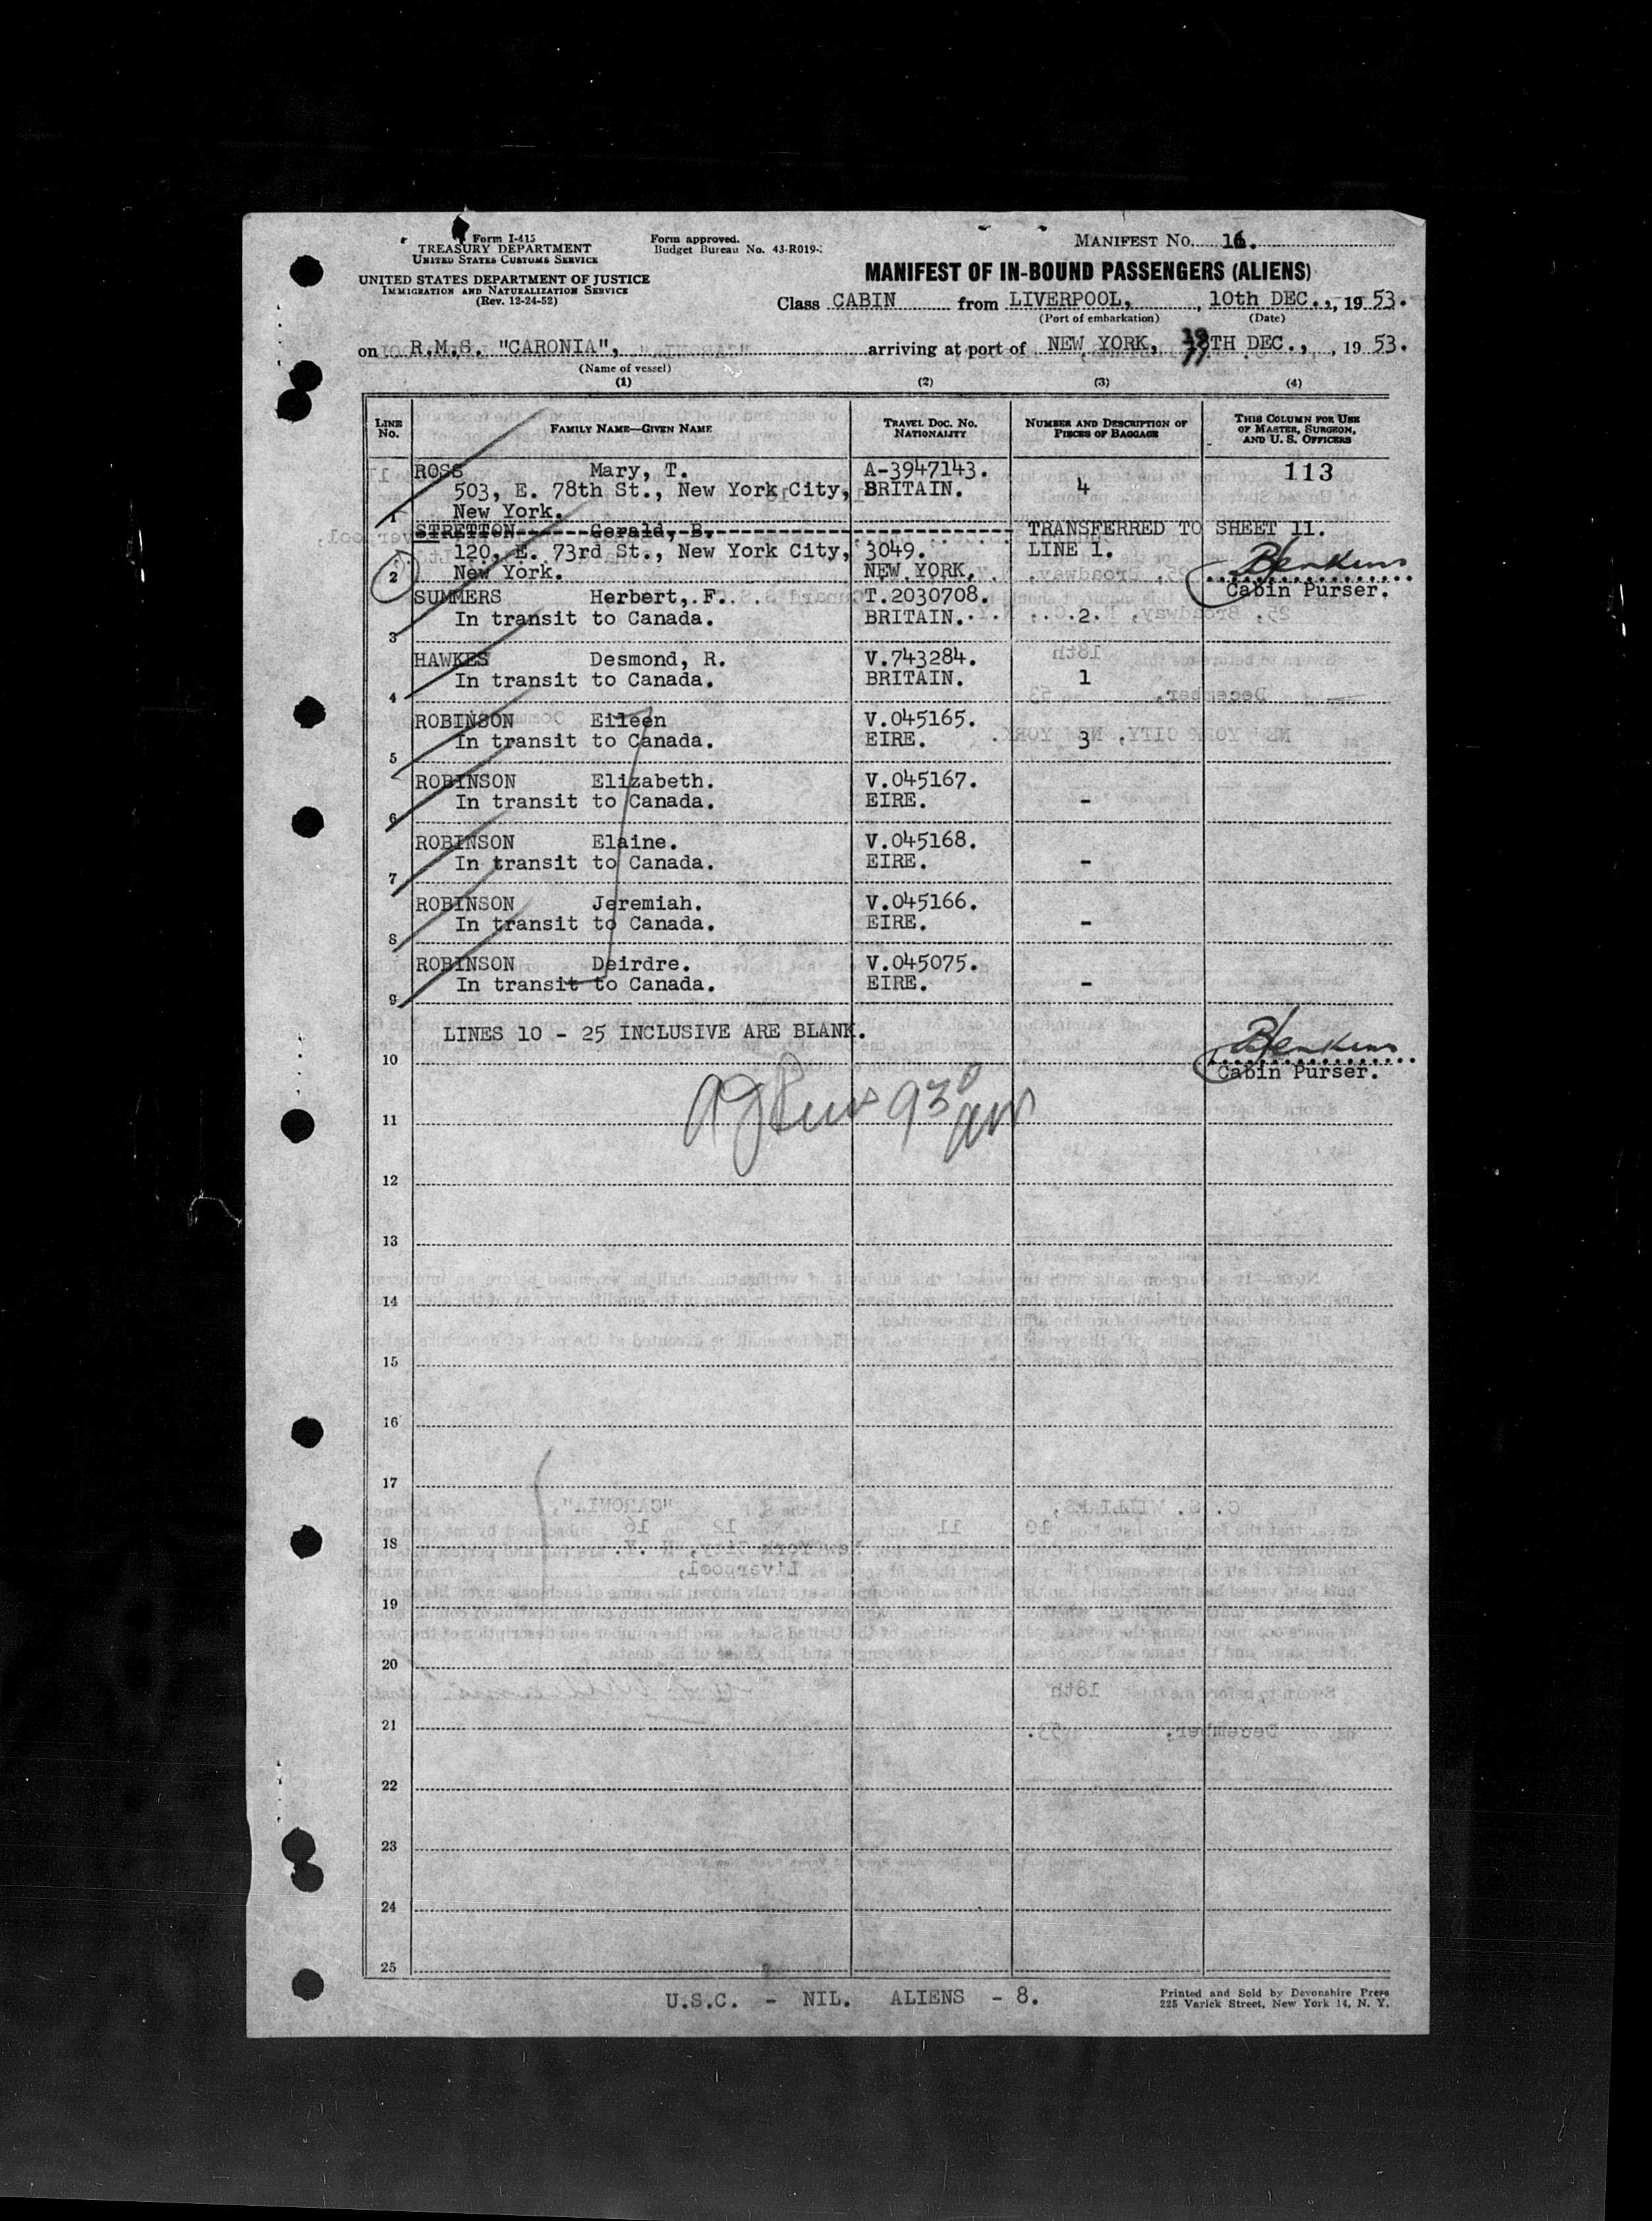 Form I-415
TREASURY DEPARTMENT
UNITED STATES CUSTOMS SERVICE
UNITED STATES DEPARTMENT OF JUSTICE
IMMIGRATION AND NATURALIZATION SERVICE
(Rev. 12-24-52)
Form approved.
Budget Bureau No. 43-R019-
MANIFEST No. 16.
MANIFEST OF IN-BOUND PASSENGERS (ALIENS)
Class CABIN from LIVERPOOL, , 10th DEC., 1953.
(Port of embarkation) (Date)
on R.M.S. "CARONIA", arriving at port of NEW YORK, TH DEC., , 1953.
(Name of vessel)
(1) (2) (3) (4)
LINE No. FAMILY NAME—GIVEN NAME TRAVEL DOC. NO. NATIONALITY NUMBER AND DESCRIPTION OF PIECES OF BAGGAGE THIS COLUMN FOR USE OF MASTER, SURGEON, AND U. S. OFFICERS
ROSS Mary, T. A-3947143. 113
503, E. 78th St., New York City, BRITAIN. 4
1 New York.
STRETTON Gerald, B. TRANSFERRED TO SHEET 11.
120, E. 73rd St., New York City, 3049. LINE 1.
2 New York. NEW YORK.
Cabin Purser.
SUMMERS Herbert, F. T.2030708.
In transit to Canada. BRITAIN. 2.
3
HAWKES Desmond, R. V.743284.
In transit to Canada. BRITAIN. 1
4
ROBINSON Eileen V.045165.
In transit to Canada. EIRE. 3
5
ROBINSON Elizabeth. V.045167.
In transit to Canada. EIRE. -
6
ROBINSON Elaine. V.045168.
In transit to Canada. EIRE. -
7
ROBINSON Jeremiah. V.045166.
In transit to Canada. EIRE. -
8
ROBINSON Deirdre. V.045075.
In transit to Canada. EIRE. -
9
LINES 10 - 25 INCLUSIVE ARE BLANK.
10
Cabin Purser.
11
12
13
14
15
16
17
18
19
20
21
22
23
24
25
U.S.C. - NIL. ALIENS - 8.
Printed and Sold by Devonshire Press
225 Varick Street, New York 14, N. Y.